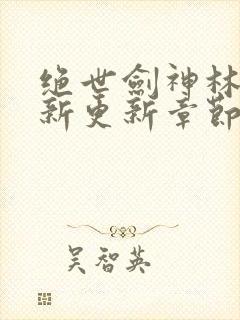 绝世劍神林
新更新章節
吴智英